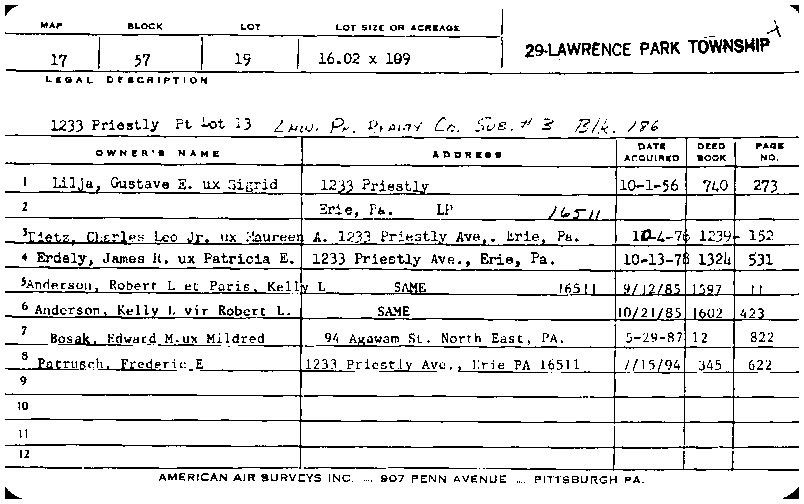 MAP BLOCK LOT LOT SIZE OR ACREAGE
29-LAWRENCE PARK TOWNSHIP
17 57 19 16.02 x 109
LEGAL DESCRIPTION
1233 Priestly Pt Lot 13 Law. Pk. Realty Co. Sub. # 3 Blk. 186
OWNER'S NAME ADDRESS DATE ACQUIRED DEED BOOK PAGE NO.
1 Lilja, Gustave E. ux Sigrid 1233 Priestly 10-1-56 740 273
2 Erie, Pa. LP 16511
3 Tietz, Charles Leo Jr. ux Maureen A. 1233 Priestly Ave,. Erie, Pa. 1239- 152
4 Erdely, James R. ux Patricia E. 1233 Priestly Ave., Erie, Pa. 10-13-78 1324 531
5 Anderson, Robert L et Paris, Kelly L SAME 16511 9/12/85 1597 11
6 Anderson, Kelly L vir Robert L. SAME 10/21/85 1602 423
7 Bosak, Edward M.ux Mildred 94 Agawam St. North East, PA. 5-29-87 12 822
8 Patrusch, Frederic E 1233 Priestly Ave., Erie PA 16511 7/15/94 345 622
9
10
11
12
AMERICAN AIR SURVEYS INC. ... 907 PENN AVENUE ... PITTSBURGH PA.